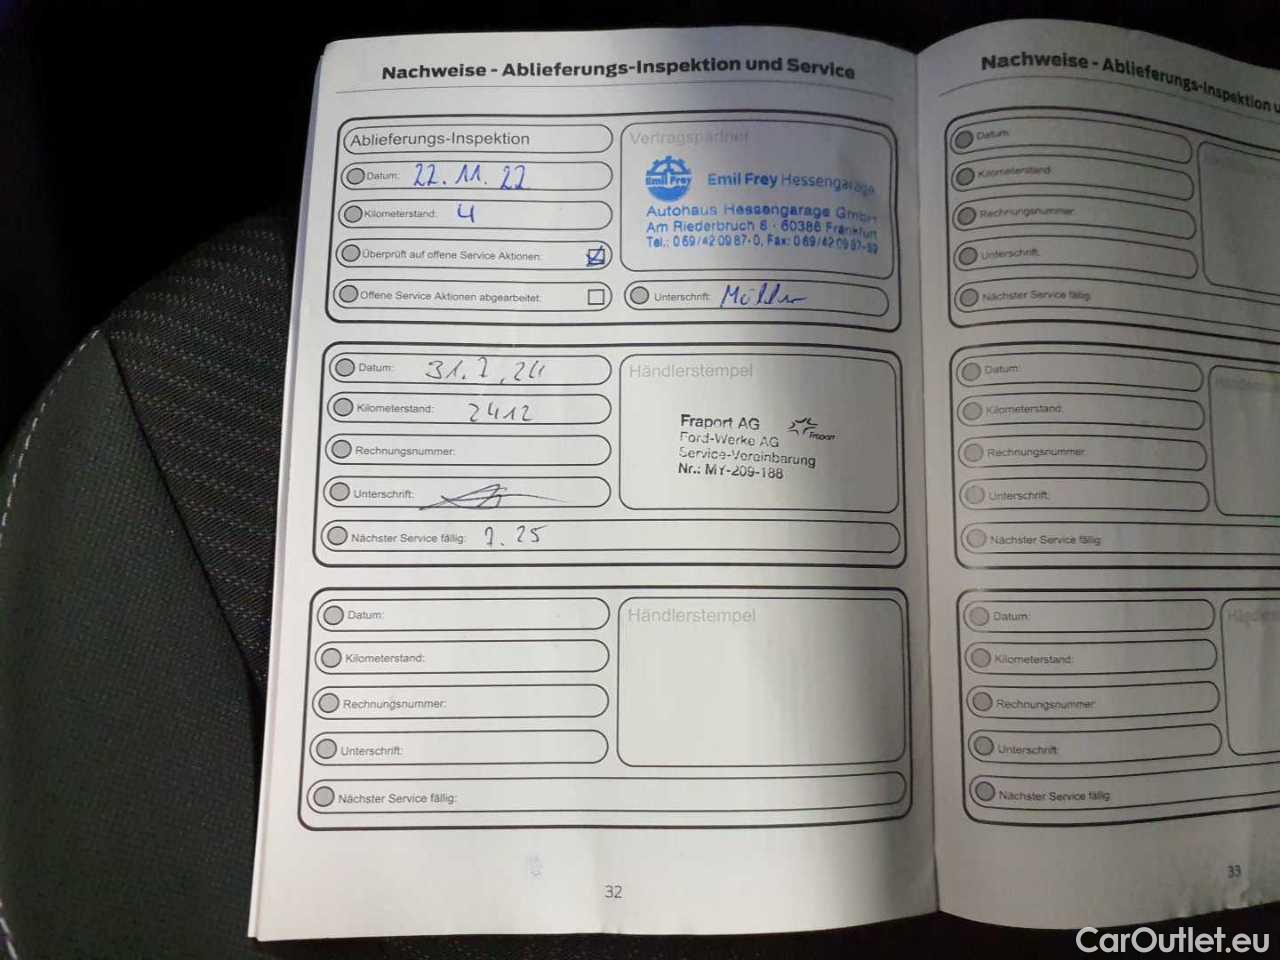 Nachweise - Ablieferungs-Inspektion und Service
Ablieferungs-Inspektion
Datum: 22.11.22
Kilometerstand: 4
Überprüft auf offene Service Aktionen:
Offene Service Aktionen abgearbeitet:
Vertragspartner
Emil Frey
Emil Frey Hessengarage
Autohaus Hessengarage GmbH
Am Riederbruch 6 · 60386 Frankfurt
Tel.: 069/42 09 87-0, Fax: 069/42 09 87-59
Unterschrift:
Datum: 31.7.24
Kilometerstand: 2412
Rechnungsnummer:
Unterschrift:
Nächster Service fällig: 7.25
Händlerstempel
Fraport AG
Fraport
Ford-Werke AG
Service-Vereinbarung
Nr.: MY-209-188
Datum:
Kilometerstand:
Rechnungsnummer:
Unterschrift:
Nächster Service fällig:
Händlerstempel
32
Nachweise - Ablieferungs-Inspektion
Datum:
Kilometerstand:
Rechnungsnummer:
Unterschrift:
Nächster Service fällig:
Datum:
Kilometerstand:
Rechnungsnummer:
Unterschrift:
Nächster Service fällig:
Datum:
Kilometerstand:
Rechnungsnummer:
Unterschrift:
Nächster Service fällig:
33
CarOutlet.eu